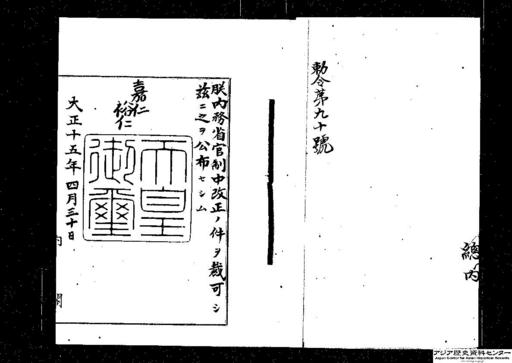 勅令第九十號
總内
朕内務省官制中改正ノ件ヲ裁可シ
玆ニ之ヲ公布セシム
嘉仁
裕仁
天皇
御璽
大正十五年四月三十日
内閣
アジア歴史資料センター
Japan Center for Asian Historical Records